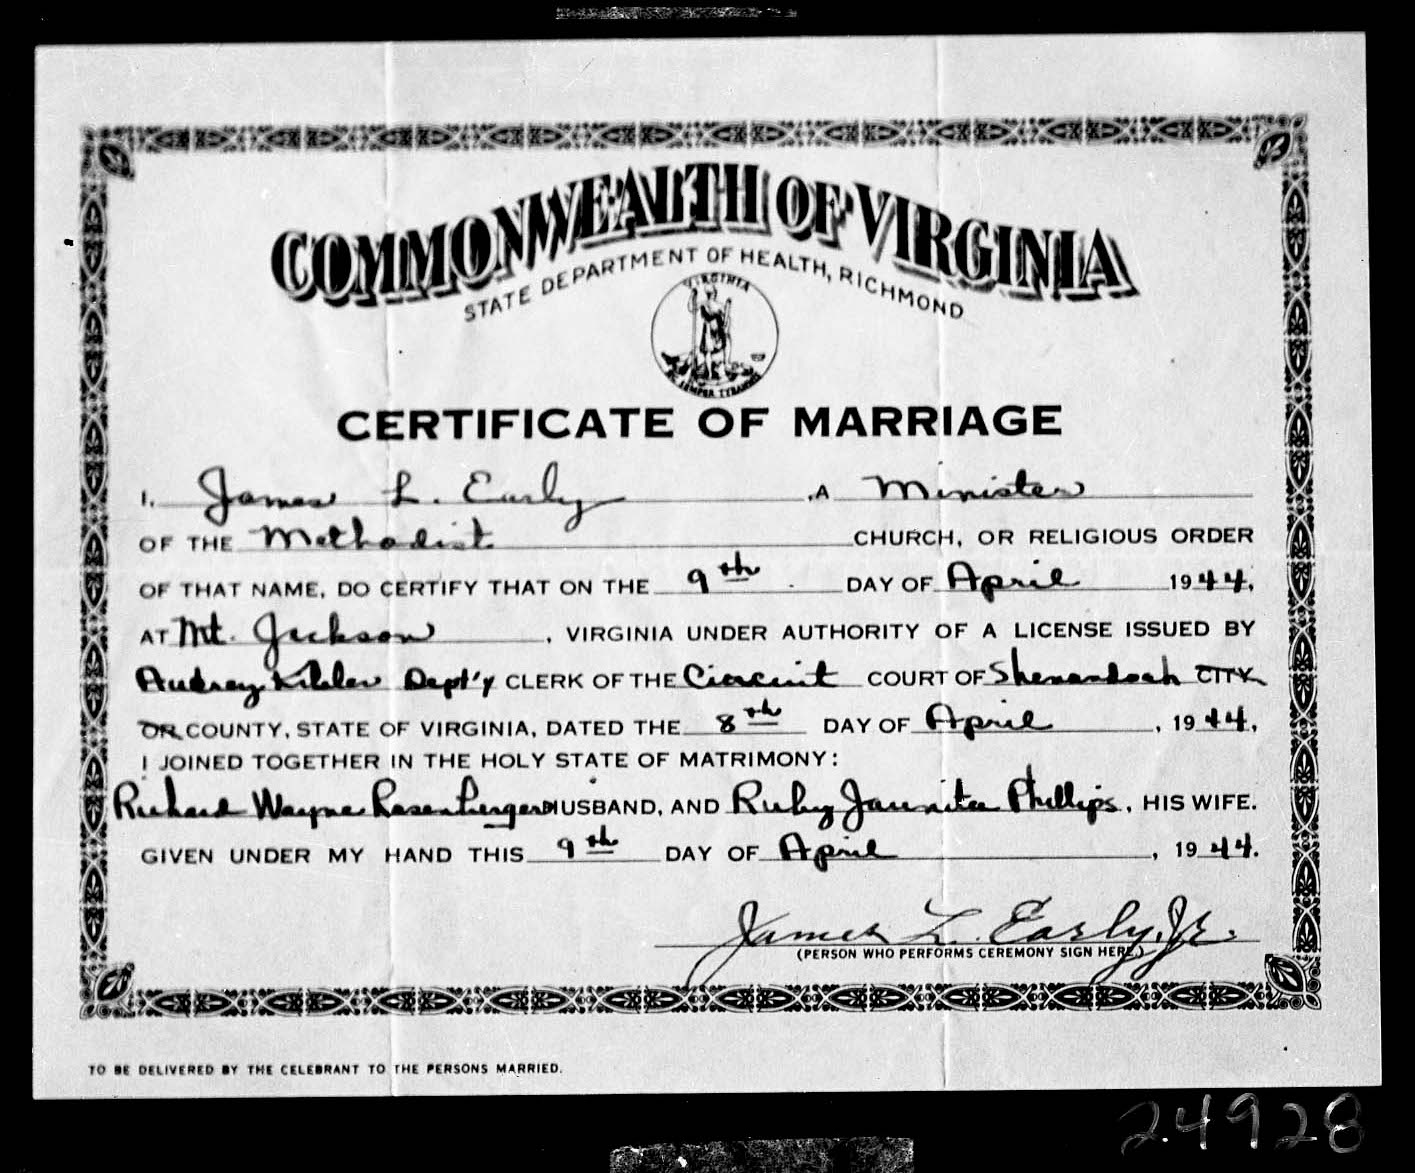 COMMONWEALTH OF VIRGINIA
STATE DEPARTMENT OF HEALTH, RICHMOND
VIRGINIA
SIC SEMPER TYRANNIS
CERTIFICATE OF MARRIAGE
I, James L. Early , A Minister
OF THE Methodist CHURCH, OR RELIGIOUS ORDER
OF THAT NAME, DO CERTIFY THAT ON THE 9th DAY OF April 1944,
AT Mt. Jackson , VIRGINIA UNDER AUTHORITY OF A LICENSE ISSUED BY
Audrey Kibler Dept'y CLERK OF THE Circuit COURT OF Shenandoah CITY
OR COUNTY, STATE OF VIRGINIA, DATED THE 8th DAY OF April , 1944,
I JOINED TOGETHER IN THE HOLY STATE OF MATRIMONY:
Richard Wayne Rosenberger HUSBAND, AND Ruby Jaunita Phillips, HIS WIFE.
GIVEN UNDER MY HAND THIS 9th DAY OF April , 1944.
James L. Early, Jr.
(PERSON WHO PERFORMS CEREMONY SIGN HERE)
TO BE DELIVERED BY THE CELEBRANT TO THE PERSONS MARRIED.
24928